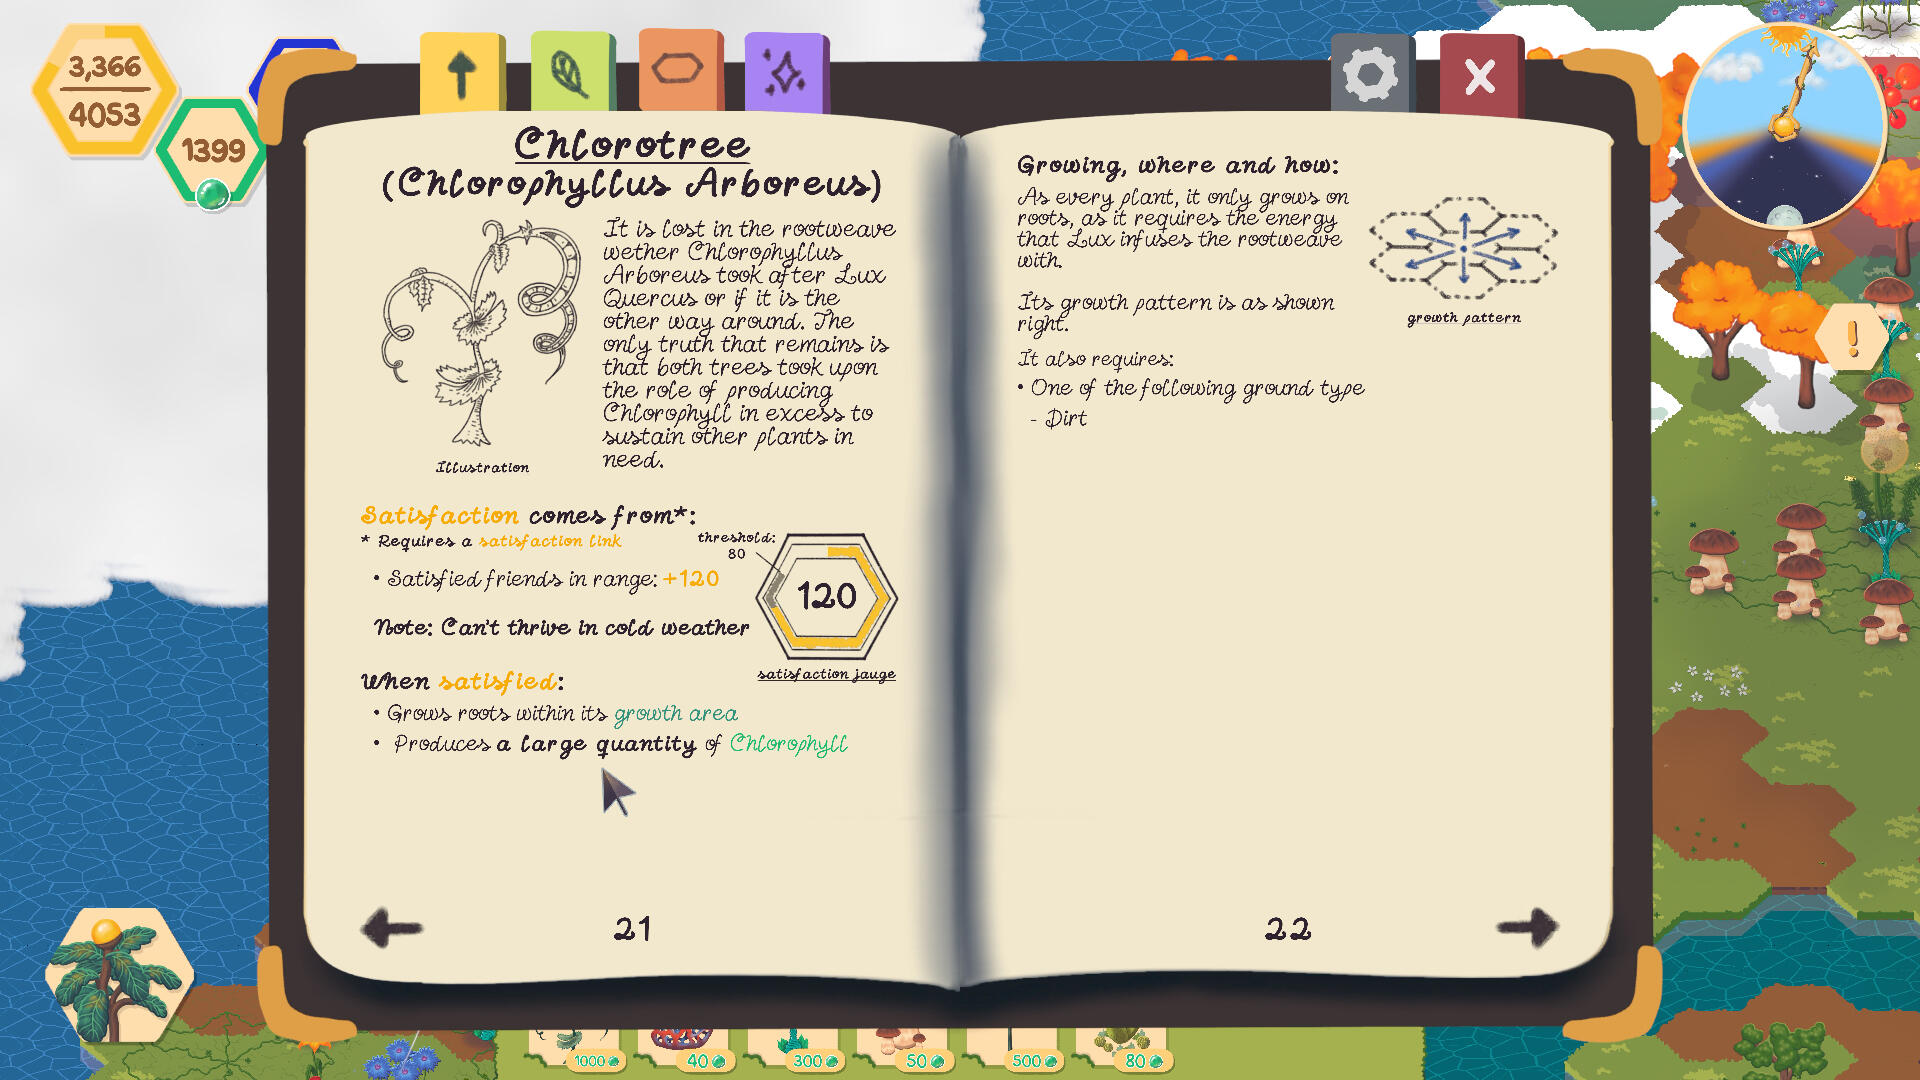 3,366
4053
1399
Chlorotree
(Chlorophyllus Arboreus)
It is lost in the rootweave
wether Chlorophyllus
Arboreus took after Lux
Quercus or if it is the
other way around. The
only truth that remains is
that both trees took upon
the role of producing
Chlorophyll in excess to
sustain other plants in
need.
Illustration
Satisfaction comes from*:
* Requires a satisfaction link
• Satisfied friends in range: +120
threshold:
80
120
satisfaction jauge
Note: Can't thrive in cold weather
When satisfied:
• Grows roots within its growth area
• Produces a large quantity of Chlorophyll
21
Growing, where and how:
As every plant, it only grows on
roots, as it requires the energy
that Lux infuses the rootweave
with.
Its growth pattern is as shown
right.
growth pattern
It also requires:
• One of the following ground type
- Dirt
22
!
1000
40
300
50
500
80